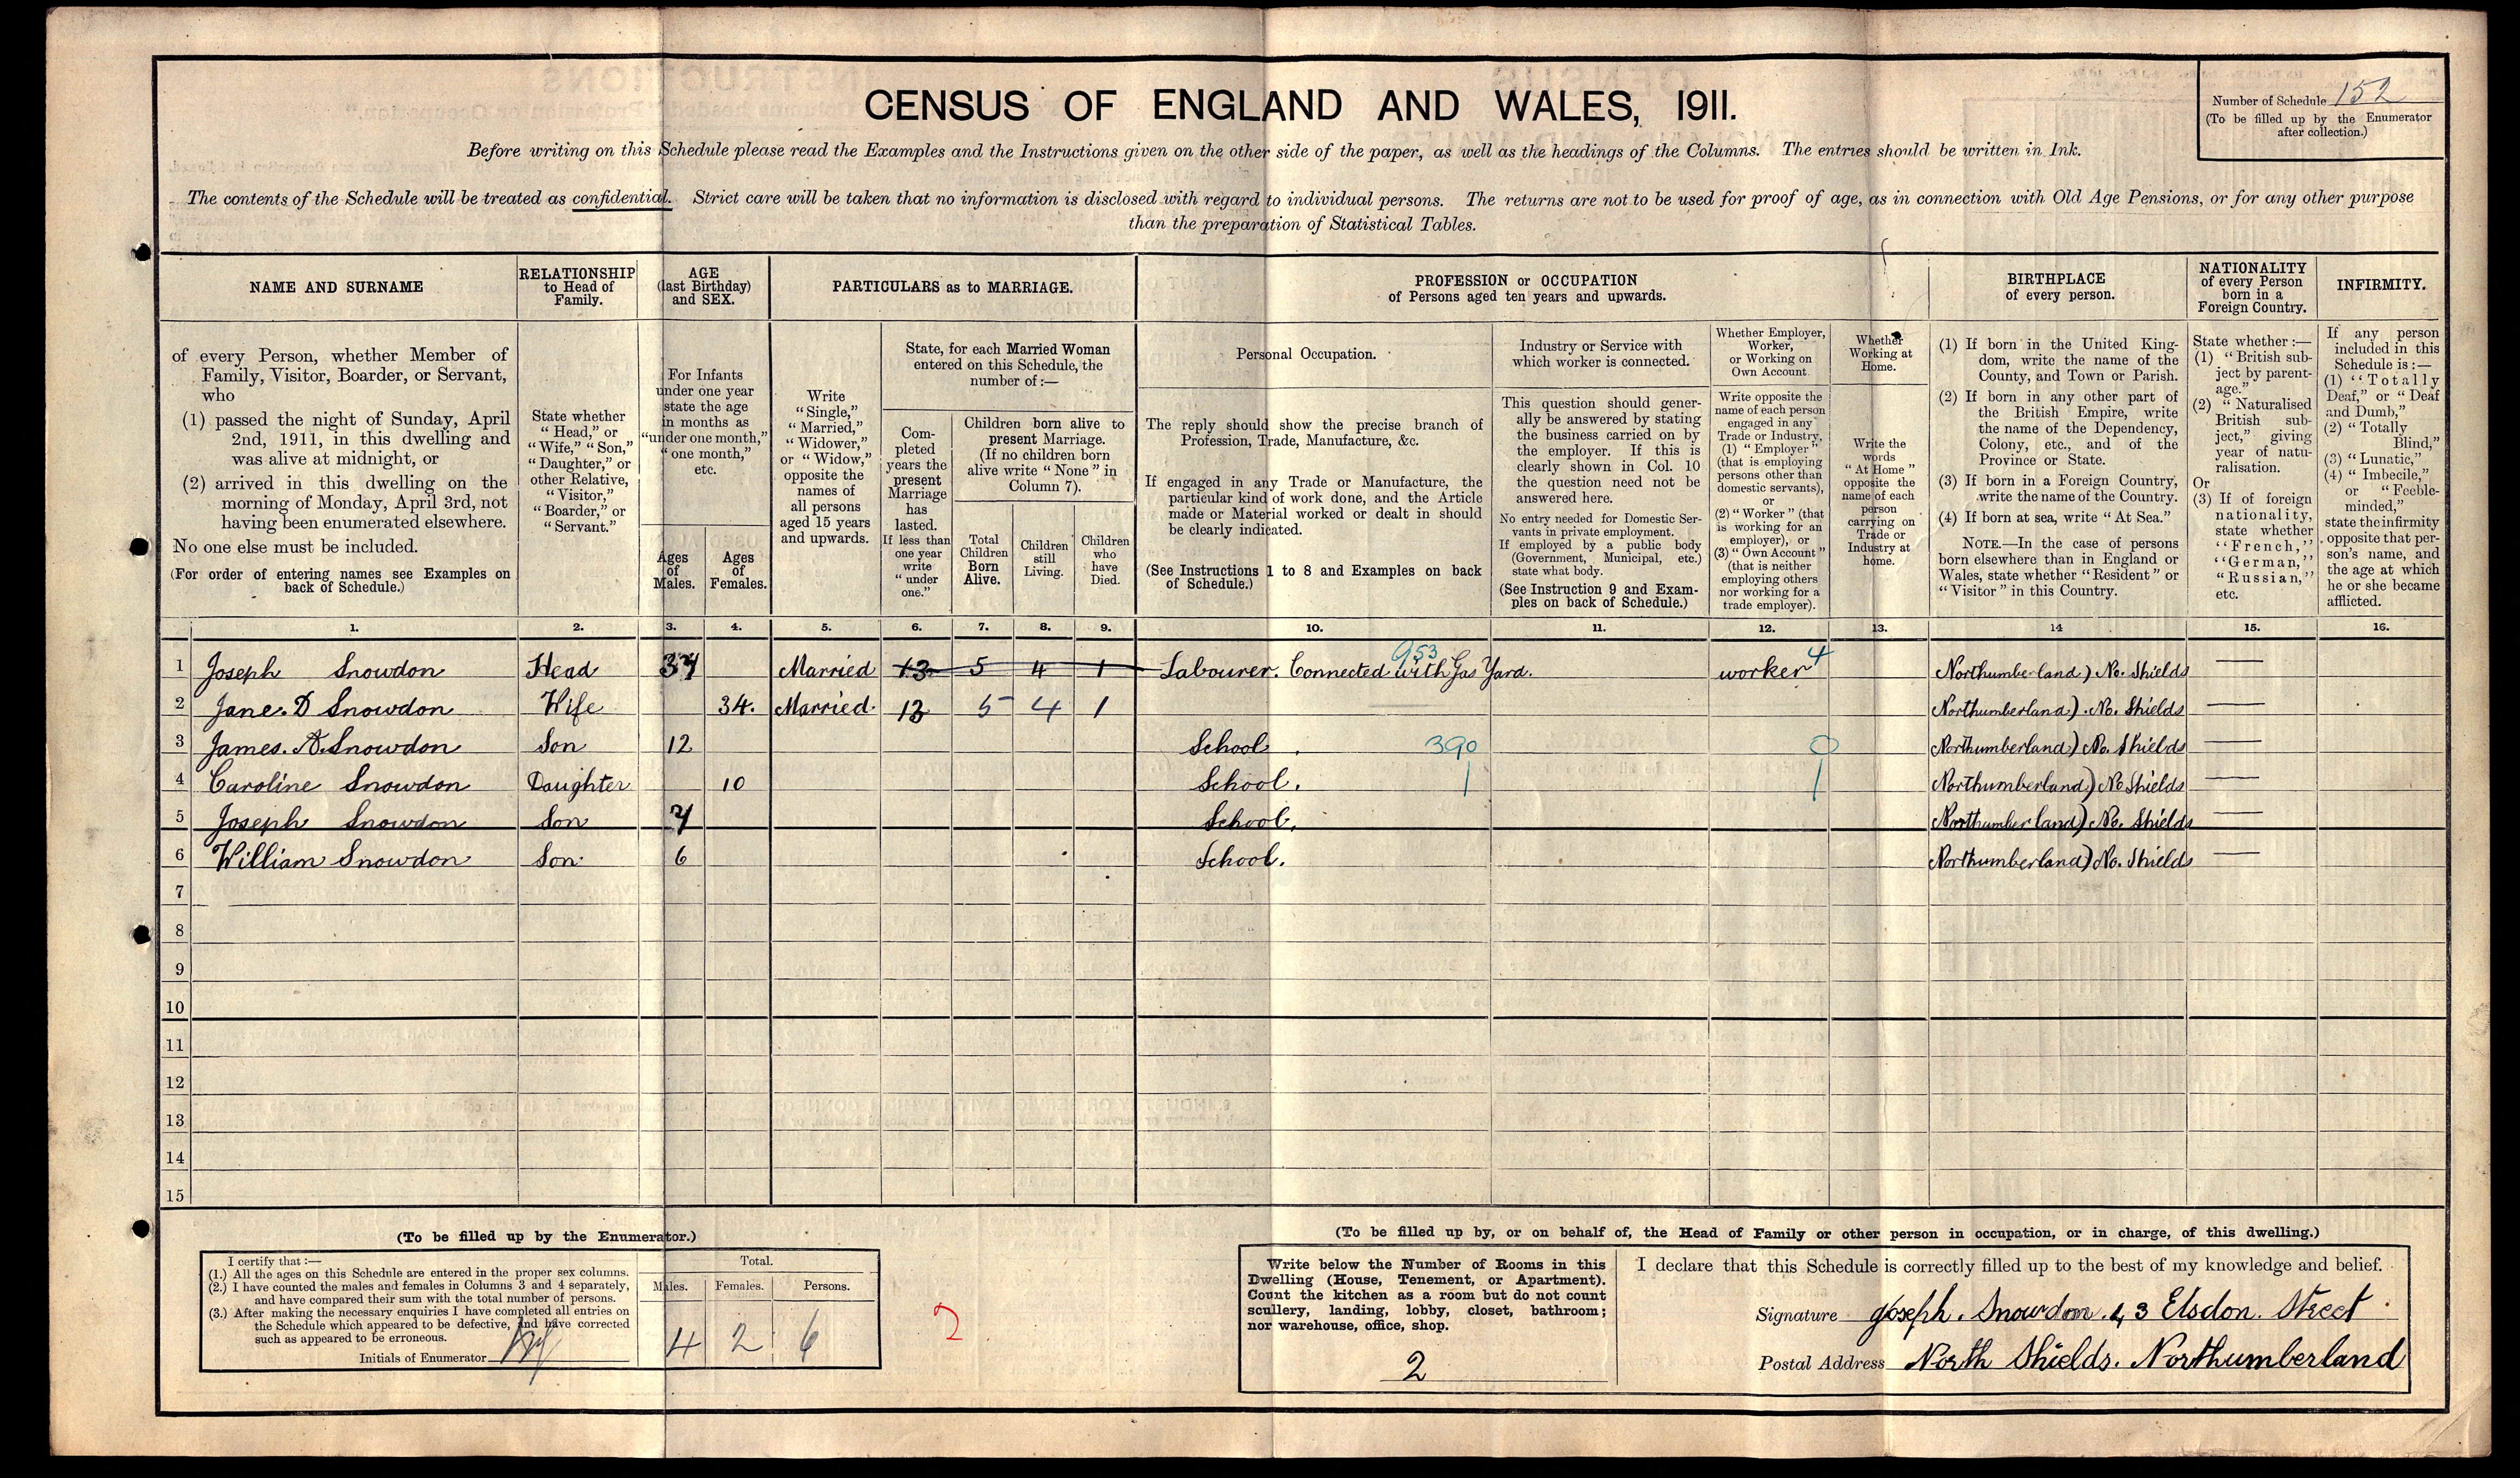 CENSUS OF ENGLAND AND WALES, 1911.
Number of Schedule 152
(To be filled up by the Enumerator
after collection.)
Before writing on this Schedule please read the Examples and the Instructions given on the other side of the paper, as well as the headings of the Columns. The entries should be written in Ink.
The contents of the Schedule will be treated as confidential. Strict care will be taken that no information is disclosed with regard to individual persons. The returns are not to be used for proof of age, as in connection with Old Age Pensions, or for any other purpose
than the preparation of Statistical Tables.
NAME AND SURNAME
of every Person, whether Member of
Family, Visitor, Boarder, or Servant,
who
(1) passed the night of Sunday, April
2nd, 1911, in this dwelling and
was alive at midnight, or
(2) arrived in this dwelling on the
morning of Monday, April 3rd, not
having been enumerated elsewhere.
No one else must be included.
(For order of entering names see Examples on
back of Schedule.)
RELATIONSHIP
to Head of
Family.
State whether
"Head," or
"Wife," "Son,"
"Daughter," or
other Relative,
"Visitor,"
"Boarder," or
"Servant."
AGE
(last Birthday)
and SEX.
For Infants
under one year
state the age
in months as
"under one month,"
"one month,"
etc.
Ages
of
Males.
Ages
of
Females.
PARTICULARS as to MARRIAGE.
Write
"Single,"
"Married,"
"Widower,"
or "Widow,"
opposite the
names of
all persons
aged 15 years
and upwards.
State, for each Married Woman
entered on this Schedule, the
number of :—
Com-
pleted
years the
present
Marriage
has
lasted.
If less than
one year
write
"under
one."
Children born alive to
present Marriage.
(If no children born
alive write "None" in
Column 7).
Total
Children
Born
Alive.
Children
still
Living.
Children
who
have
Died.
PROFESSION or OCCUPATION
of Persons aged ten years and upwards.
Personal Occupation.
The reply should show the precise branch of
Profession, Trade, Manufacture, &c.
If engaged in any Trade or Manufacture, the
particular kind of work done, and the Article
made or Material worked or dealt in should
be clearly indicated.
(See Instructions 1 to 8 and Examples on back
of Schedule.)
Industry or Service with
which worker is connected.
This question should gener-
ally be answered by stating
the business carried on by
the employer. If this is
clearly shown in Col. 10
the question need not be
answered here.
No entry needed for Domestic Ser-
vants in private employment.
If employed by a public body
(Government, Municipal, etc.)
state what body.
(See Instruction 9 and Exam-
ples on back of Schedule.)
Whether Employer,
Worker,
or Working on
Own Account
Write opposite the
name of each person
engaged in any
Trade or Industry,
(1) "Employer"
(that is employing
persons other than
domestic servants),
or
(2) "Worker" (that
is working for an
employer), or
(3) "Own Account"
(that is neither
employing others
nor working for a
trade employer).
Whether
Working at
Home.
Write the
words
"At Home"
opposite the
name of each
person
carrying on
Trade or
Industry at
home.
BIRTHPLACE
of every person.
(1) If born in the United King-
dom, write the name of the
County, and Town or Parish.
(2) If born in any other part of
the British Empire, write
the name of the Dependency,
Colony, etc., and of the
Province or State.
(3) If born in a Foreign Country,
write the name of the Country.
(4) If born at sea, write "At Sea."
NOTE.—In the case of persons
born elsewhere than in England or
Wales, state whether "Resident" or
"Visitor" in this Country.
NATIONALITY
of every Person
born in a
Foreign Country.
State whether :—
(1) "British sub-
ject by parent-
age."
(2) "Naturalised
British sub-
ject," giving
year of natu-
ralisation.
Or
(3) If of foreign
nationality,
state whether
"French,"
"German,"
"Russian,"
etc.
INFIRMITY.
If any person
included in this
Schedule is :—
(1) "Totally
Deaf," or "Deaf
and Dumb,"
(2) "Totally
Blind,"
(3) "Lunatic,"
(4) "Imbecile,"
or "Feeble-
minded,"
state the infirmity
opposite that per-
son's name, and
the age at which
he or she became
afflicted.
1. 2. 3. 4. 5. 6. 7. 8. 9. 10. 11. 12. 13. 14 15. 16.
953
1 Joseph Snowdon Head 37 Married 13 5 4 1 Labourer. Connected with Gas Yard. worker 4 Northumberland) No. Shields —
2 Jane. D Snowdon Wife 34. Married. 13 5 4 1 Northumberland). No. Shields —
3 James. A. Snowdon Son 12 School. 390 0 Northumberland) No. Shields —
4 Caroline Snowdon Daughter 10 School. Northumberland) No Shields —
5 Joseph Snowdon Son 7 School. Northumberland) No. Shields —
6 William Snowdon Son 6 School. Northumberland) No. Shields —
7
8
9
10
11
12
13
14
15
(To be filled up by the Enumerator.)
I certify that :—
(1.) All the ages on this Schedule are entered in the proper sex columns.
(2.) I have counted the males and females in Columns 3 and 4 separately,
and have compared their sum with the total number of persons.
(3.) After making the necessary enquiries I have completed all entries on
the Schedule which appeared to be defective, and have corrected
such as appeared to be erroneous.
Initials of Enumerator
Total.
Males. Females. Persons.
4 2 6
2
(To be filled up by, or on behalf of, the Head of Family or other person in occupation, or in charge, of this dwelling.)
Write below the Number of Rooms in this
Dwelling (House, Tenement, or Apartment).
Count the kitchen as a room but do not count
scullery, landing, lobby, closet, bathroom;
nor warehouse, office, shop.
2
I declare that this Schedule is correctly filled up to the best of my knowledge and belief.
Signature Joseph. Snowdon. 43 Elsdon. Street
Postal Address North Shields. Northumberland